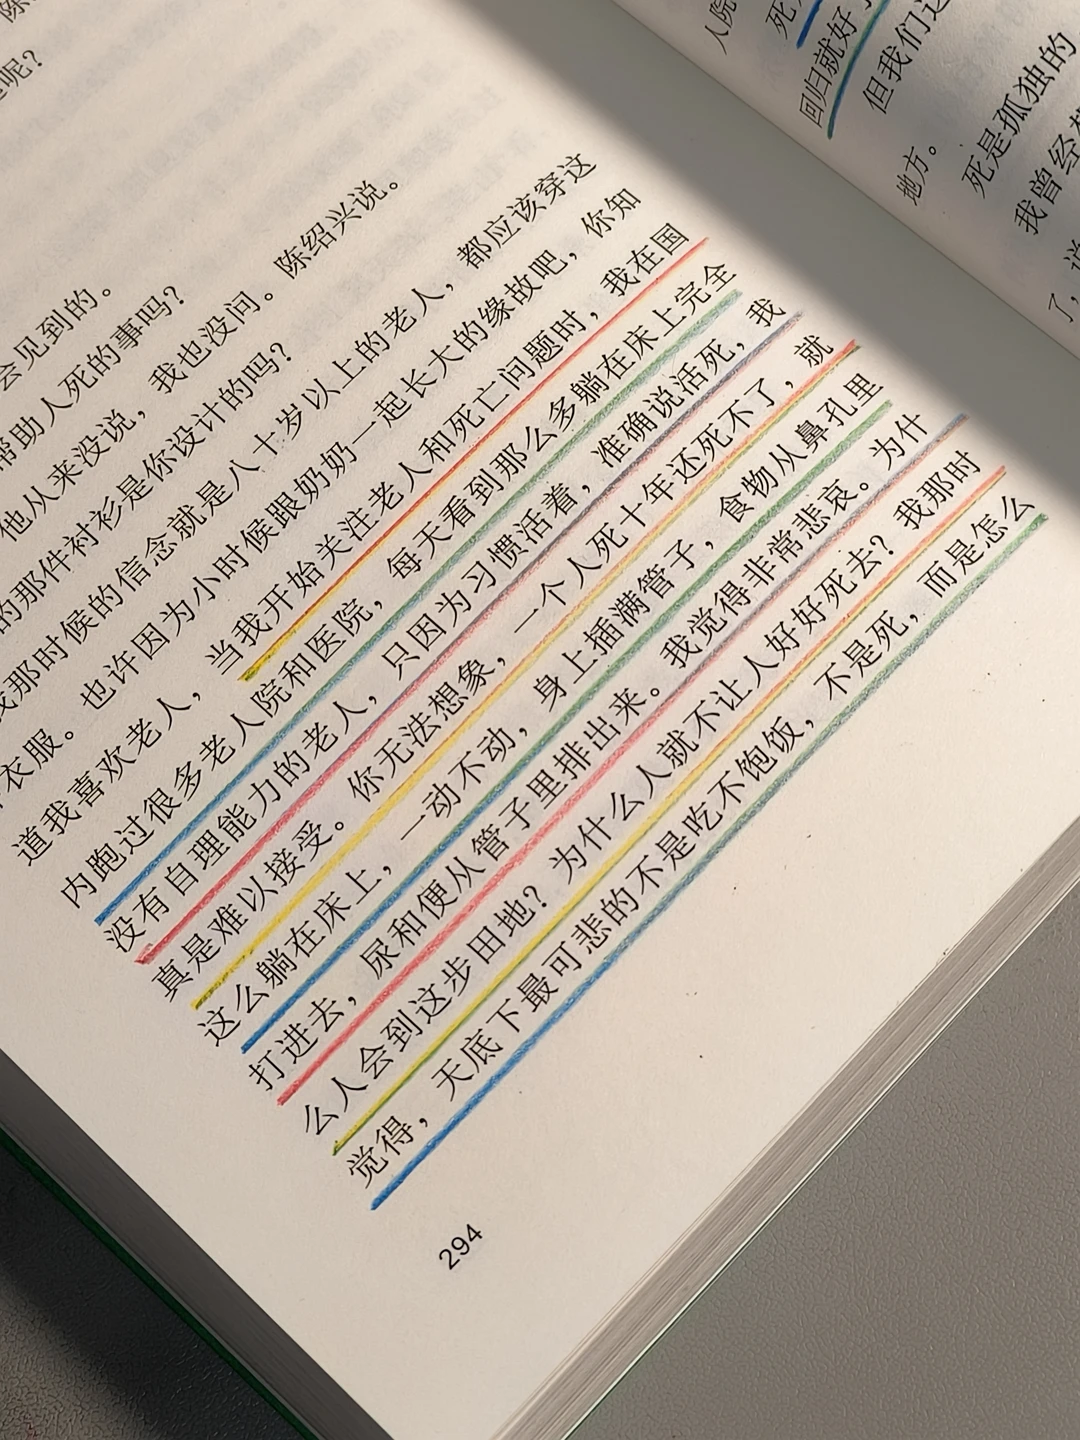 呢？
会见到的。
帮助人死的事吗？
他从来没说，我也没问。陈绍兴说。
的那件衬衫是你设计的吗？
我那时候的信念就是八十岁以上的老人，都应该穿这
衣服。也许因为小时候跟奶奶一起长大的缘故吧，你知
道我喜欢老人，当我开始关注老人和死亡问题时，我在国
内跑过很多老人院和医院，每天看到那么多躺在床上完全
没有自理能力的老人，只因为习惯活着，准确说活死，我
真是难以接受。你无法想象，一个人死十年还死不了，就
这么躺在床上，一动不动，身上插满管子，食物从鼻孔里
打进去，尿和便从管子里排出来。我觉得非常悲哀。为什
么人会到这步田地？为什么人就不让人好好死去？我那时
觉得，天底下最可悲的不是吃不饱饭，不是死，而是怎么
294
人院
死
回归就好了
但我们这
地方。
死是孤独的
我曾经
了，